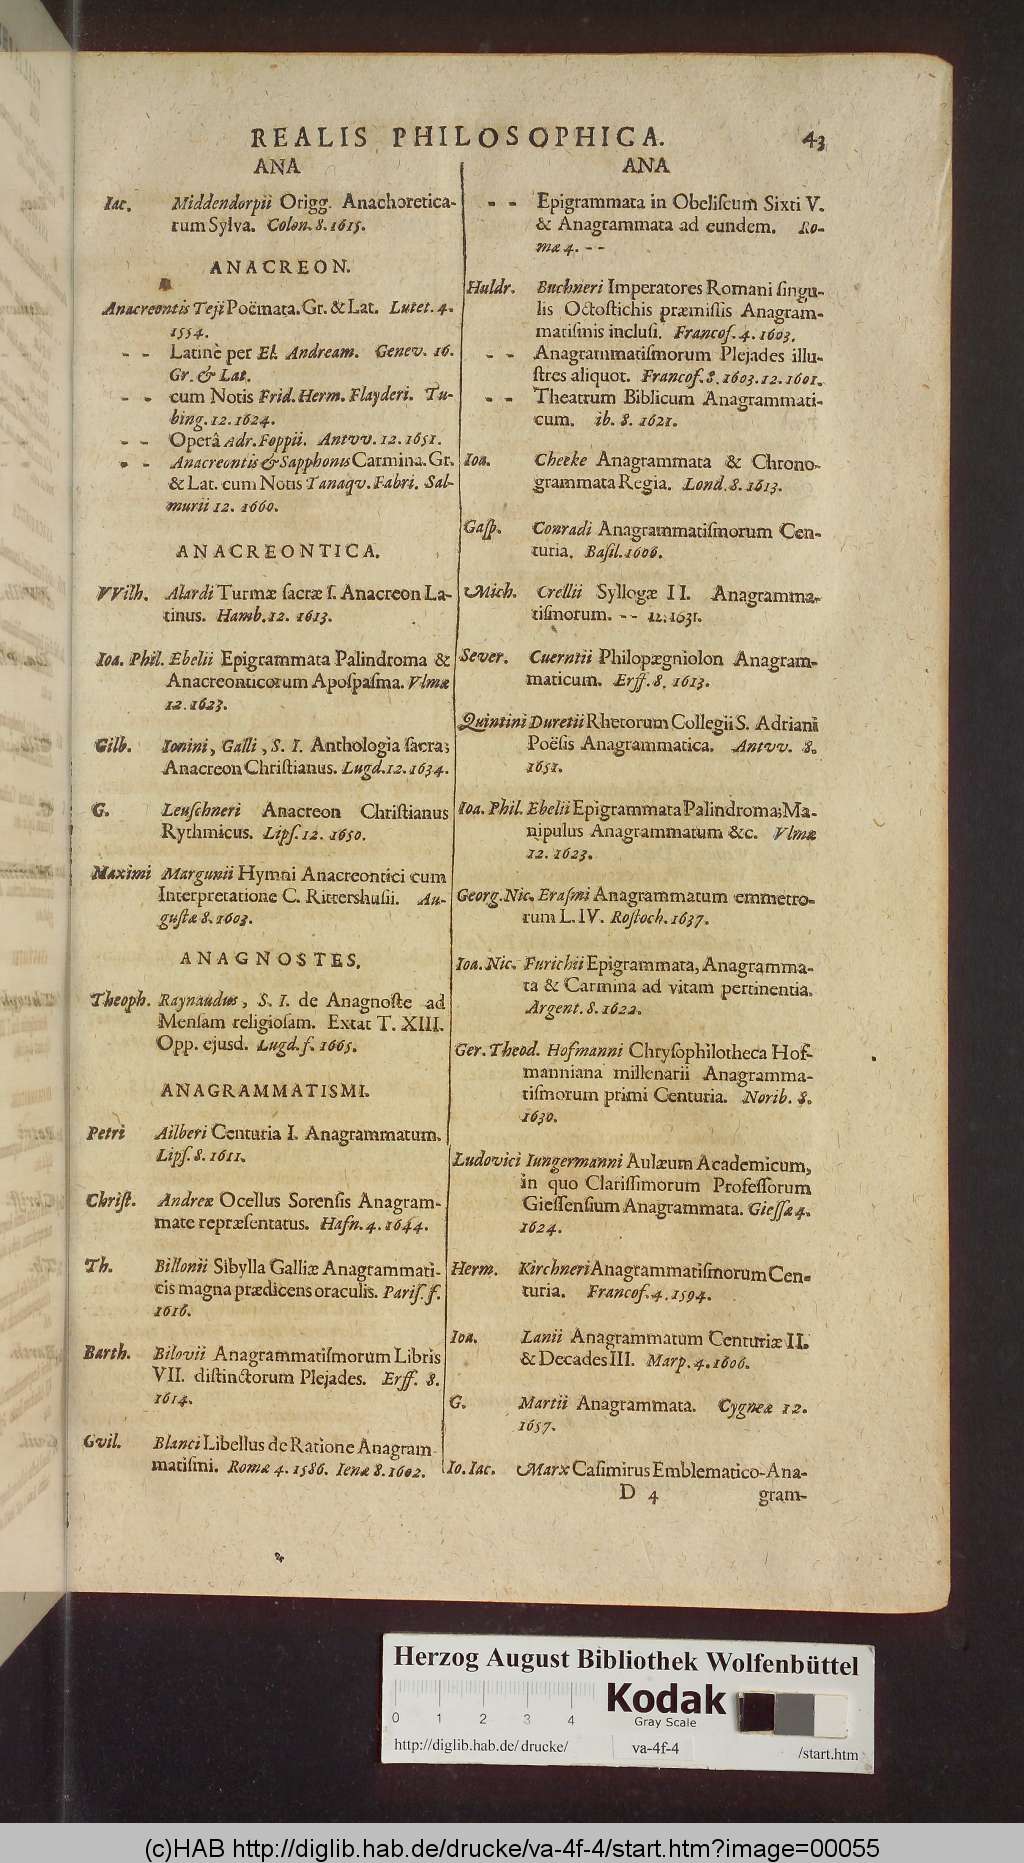 REALIS PHILOSOPHICA. 43
ANA
Iac. Middendorpii Origg. Anachoretica-
rum Sylva. Colon. 8. 1615.
ANACREON.
Anacreontis Teji Poëmata. Gr. & Lat. Lutet. 4.
1554.
- - Latinè per El. Andream. Genev. 16.
Gr. & Lat.
- - cum Notis Frid. Herm. Flayderi. Tu-
bing. 12. 1624.
- - Operâ Adr. Foppii. Antvv. 12. 1651.
- - Anacreontis & Sapphonis Carmina. Gr.
& Lat. cum Notis Tanaqv. Fabri. Sal-
murii 12. 1660.
ANACREONTICA.
VVilh. Alardi Turmæ sacræ s. Anacreon La-
tinus. Hamb. 12. 1613.
Ioa. Phil. Ebelii Epigrammata Palindroma &
Anacreonticorum Apospasma. Vlmæ
12. 1623.
Gilb. Ionini, Galli, S. I. Anthologia sacra;
Anacreon Christianus. Lugd. 12. 1634.
G. Leuschneri Anacreon Christianus
Rythmicus. Lips. 12. 1650.
Maximi Margunii Hymni Anacreontici cum
Interpretatione C. Rittershusii. Au-
gustæ 8. 1603.
ANAGNOSTES.
Theoph. Raynaudus, S. I. de Anagnoste ad
Mensam religiosam. Extat T. XIII.
Opp. ejusd. Lugd. f. 1665.
ANAGRAMMATISMI.
Petri Ailberi Centuria I. Anagrammatum.
Lips. 8. 1611.
Christ. Andreæ Ocellus Sorensis Anagram-
mate repræsentatus. Hafn. 4. 1644.
Th. Billonii Sibylla Galliæ Anagrammati-
cis magna prædicens oraculis. Paris. f.
1616.
Barth. Bilovii Anagrammatismorum Libris
VII. distinctorum Plejades. Erff. 8.
1614.
Gvil. Blanci Libellus de Ratione Anagram-
matismi. Romæ 4. 1586. Ienæ 8. 1602.
ANA
- - Epigrammata in Obeliscum Sixti V.
& Anagrammata ad eundem. Ro-
mæ 4. - -
Huldr. Buchneri Imperatores Romani singu-
lis Octostichis præmissis Anagram-
matismis inclusi. Francof. 4. 1603.
- - Anagrammatismorum Plejades illu-
stres aliquot. Francof. 8. 1603. 12. 1601.
- - Theatrum Biblicum Anagrammati-
cum. ib. 8. 1621.
Ioa. Cheeke Anagrammata & Chrono-
grammata Regia. Lond. 8. 1613.
Gasp. Conradi Anagrammatismorum Cen-
turia. Basil. 1606.
Mich. Crellii Syllogæ II. Anagramma-
tismorum. - - 12. 1631.
Sever. Cuerntii Philopægniolon Anagram-
maticum. Erff. 8. 1613.
Quintini Duretii Rhetorum Collegii S. Adriani
Poësis Anagrammatica. Antvv. 8.
1651.
Ioa. Phil. Ebelii Epigrammata Palindroma; Ma-
nipulus Anagrammatum &c. Vlmæ
12. 1623.
Georg. Nic. Erasmi Anagrammatum emmetro-
rum L. IV. Rostoch. 1637.
Ioa. Nic. Furichii Epigrammata, Anagramma-
ta & Carmina ad vitam pertinentia.
Argent. 8. 1622.
Ger. Theod. Hofmanni Chrysophilotheca Hof-
manniana millenarii Anagramma-
tismorum primi Centuria. Norib. 8.
1630.
Ludovici Iungermanni Aulæum Academicum,
in quo Clarissimorum Professorum
Giessensium Anagrammata. Giessæ 4.
1624.
Herm. Kirchneri Anagrammatismorum Cen-
turia. Francof. 4. 1594.
Ioa. Lanii Anagrammatum Centuriæ II.
& Decades III. Marp. 4. 1606.
G. Martii Anagrammata. Cygneæ 12.
1657.
Io. Iac. Marx Casimirus Emblematico-Ana-
D 4 gram-
Herzog August Bibliothek Wolfenbüttel
Kodak
Gray Scale
0 1 2 3 4
http://diglib.hab.de/drucke/ va-4f-4 /start.htm
(c)HAB http://diglib.hab.de/drucke/va-4f-4/start.htm?image=00055